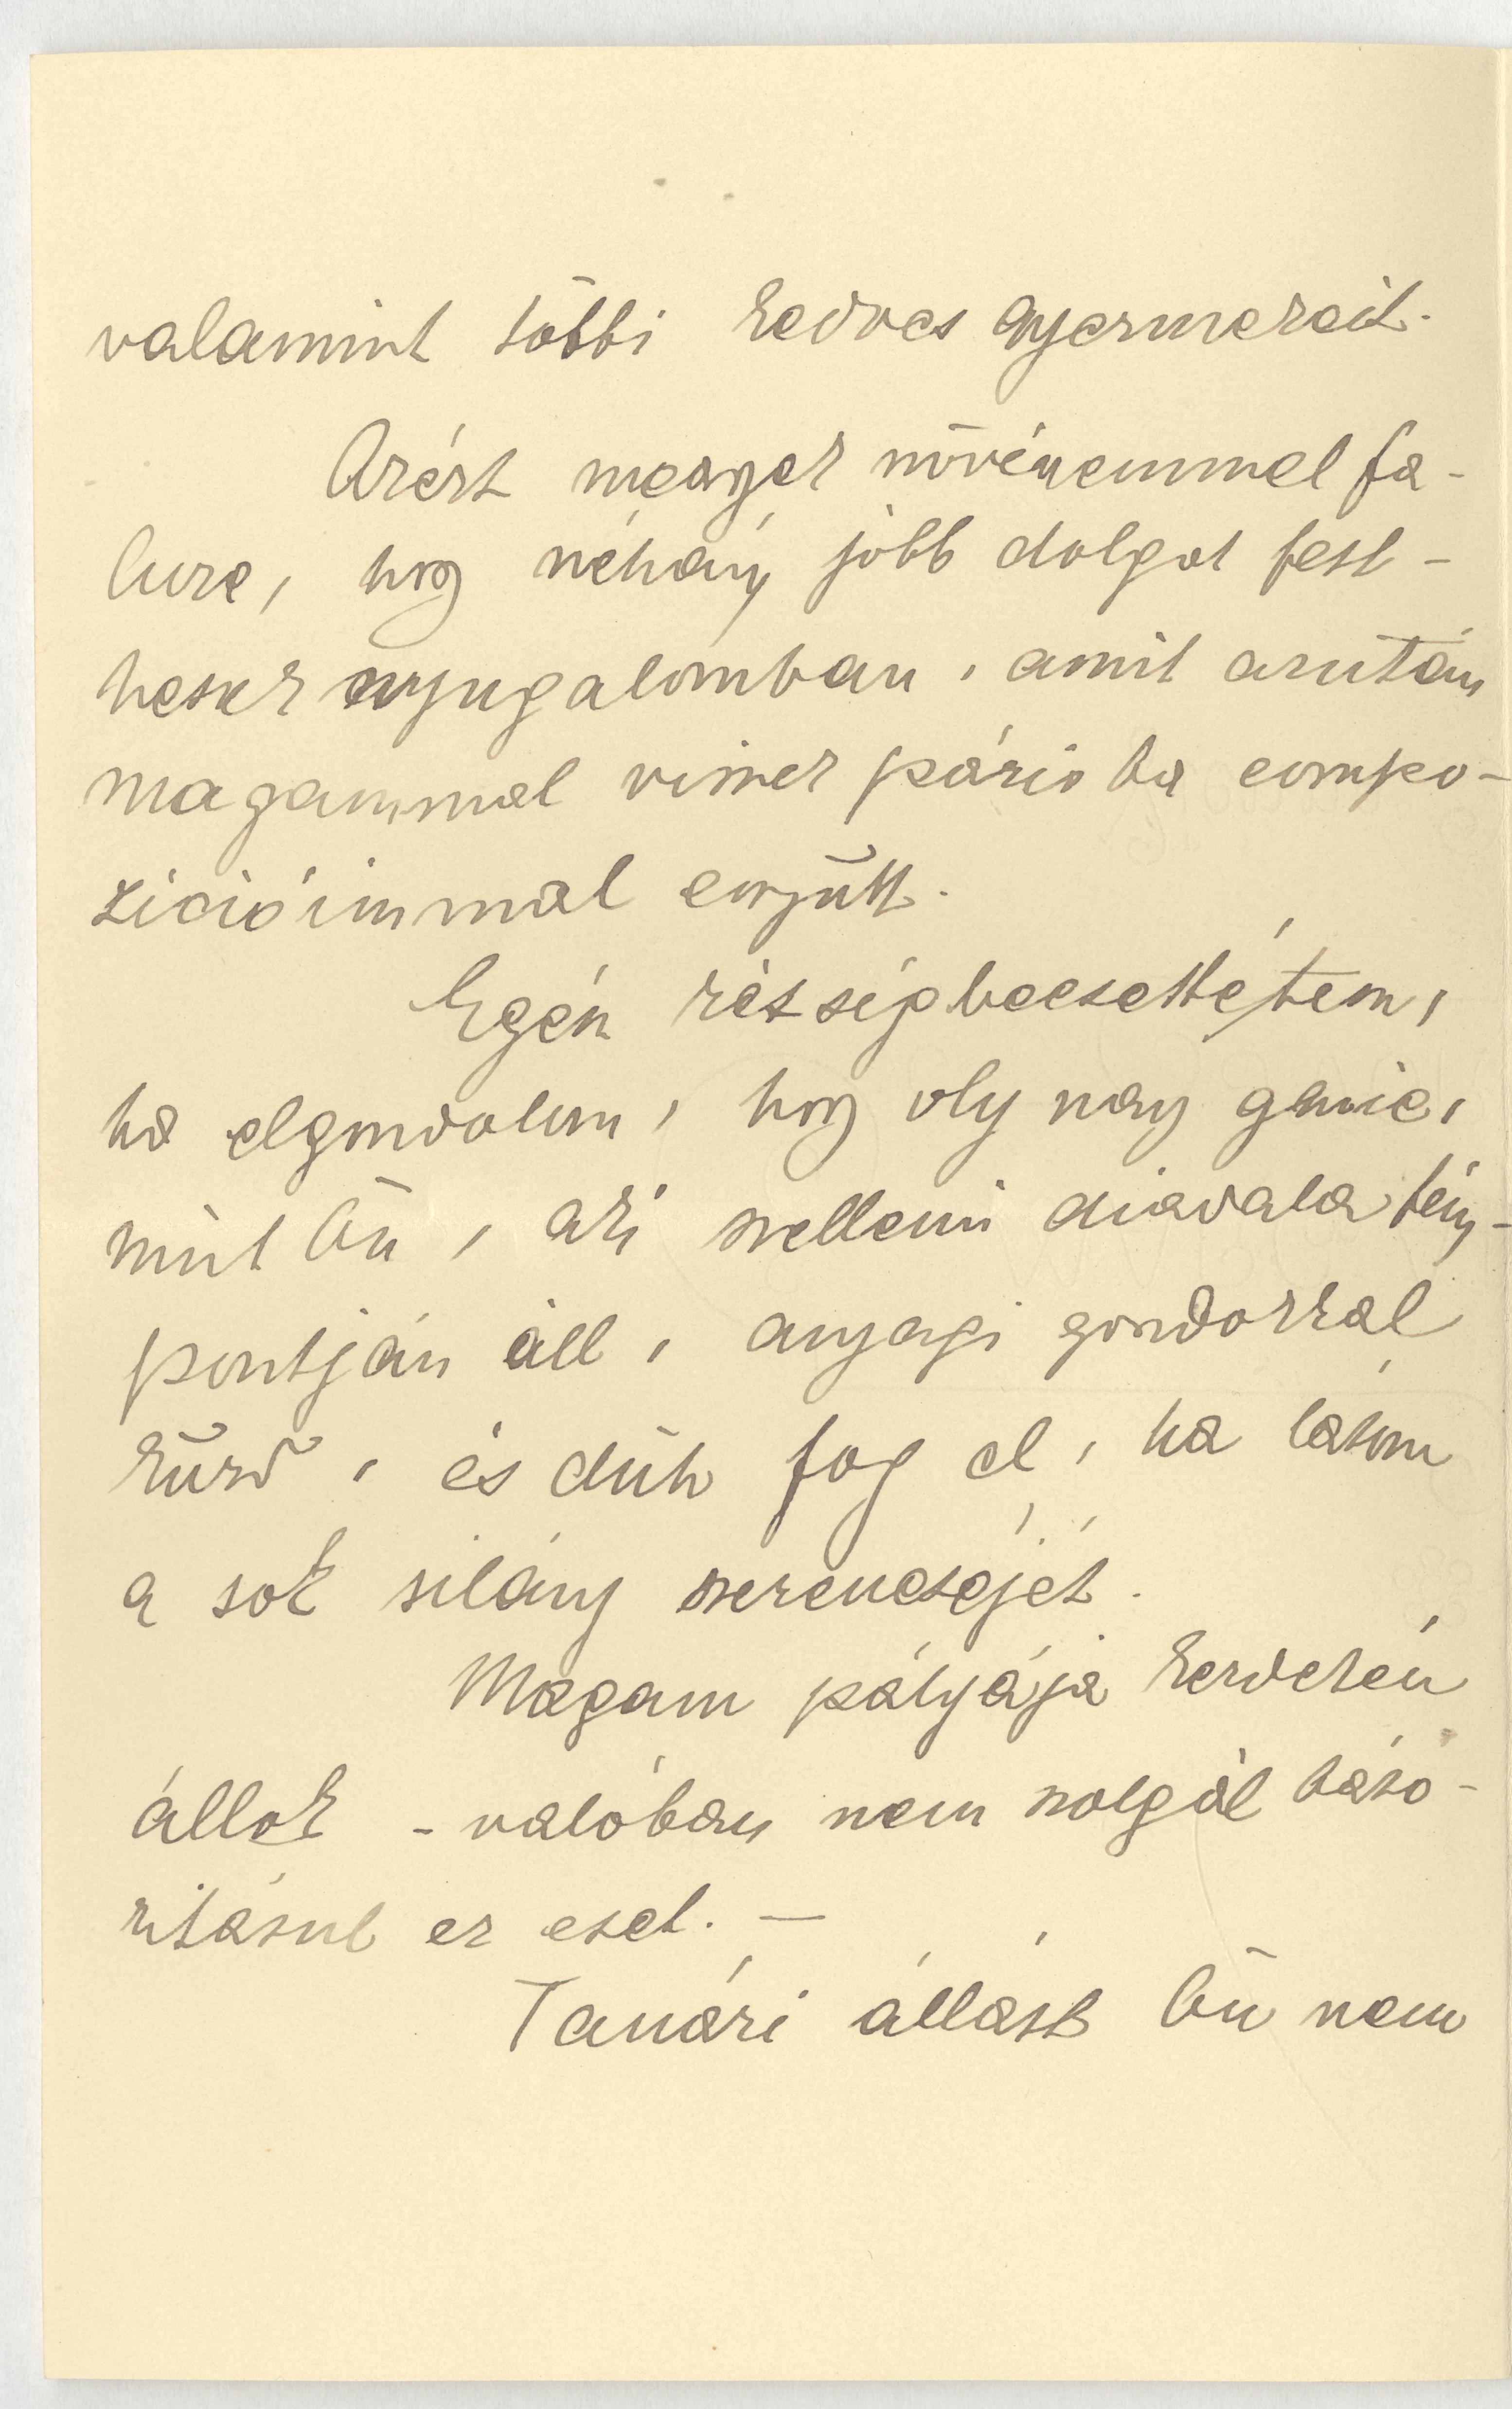 valamint többi kedves gyermekeit.
Azért megyek nővéremmel fa-
lura, hogy néhány jobb dolgot fest-
hesek nyugalomban, amit azután
magammal viszek párisba compo-
zicióimmal együtt.
Egén kétségbeesettétem,
ha elgondolom, hogy oly nagy génie,
mint Ön, aki szellemi diadala fény-
pontján áll, anyagi gondokkal
küzd, és düh fog el, ha látom
a sok silány szerencséjét.
Magam pályája kezdetén
állok - valóban nem szolgál báto-
ritásul ez eset. —
Tanári állást Ön nem